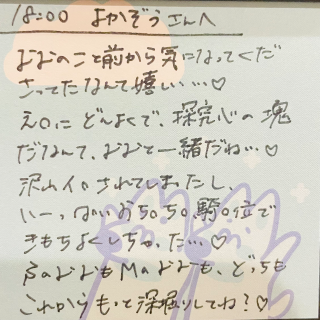 18:00 よかぞうさんへ
なおのこと前から気になってくだ
さってたなんて嬉しい…♡
え〇にどんよくで、探究心の塊
だなんて、なおと一緒だね…♡
沢山イ〇されてしまったし、
いーっぱいおち〇ち〇騎〇位で
きもちよくしちゃった…♡
なおもMなおも、どっちも
これからもっと深掘りしてね?♡